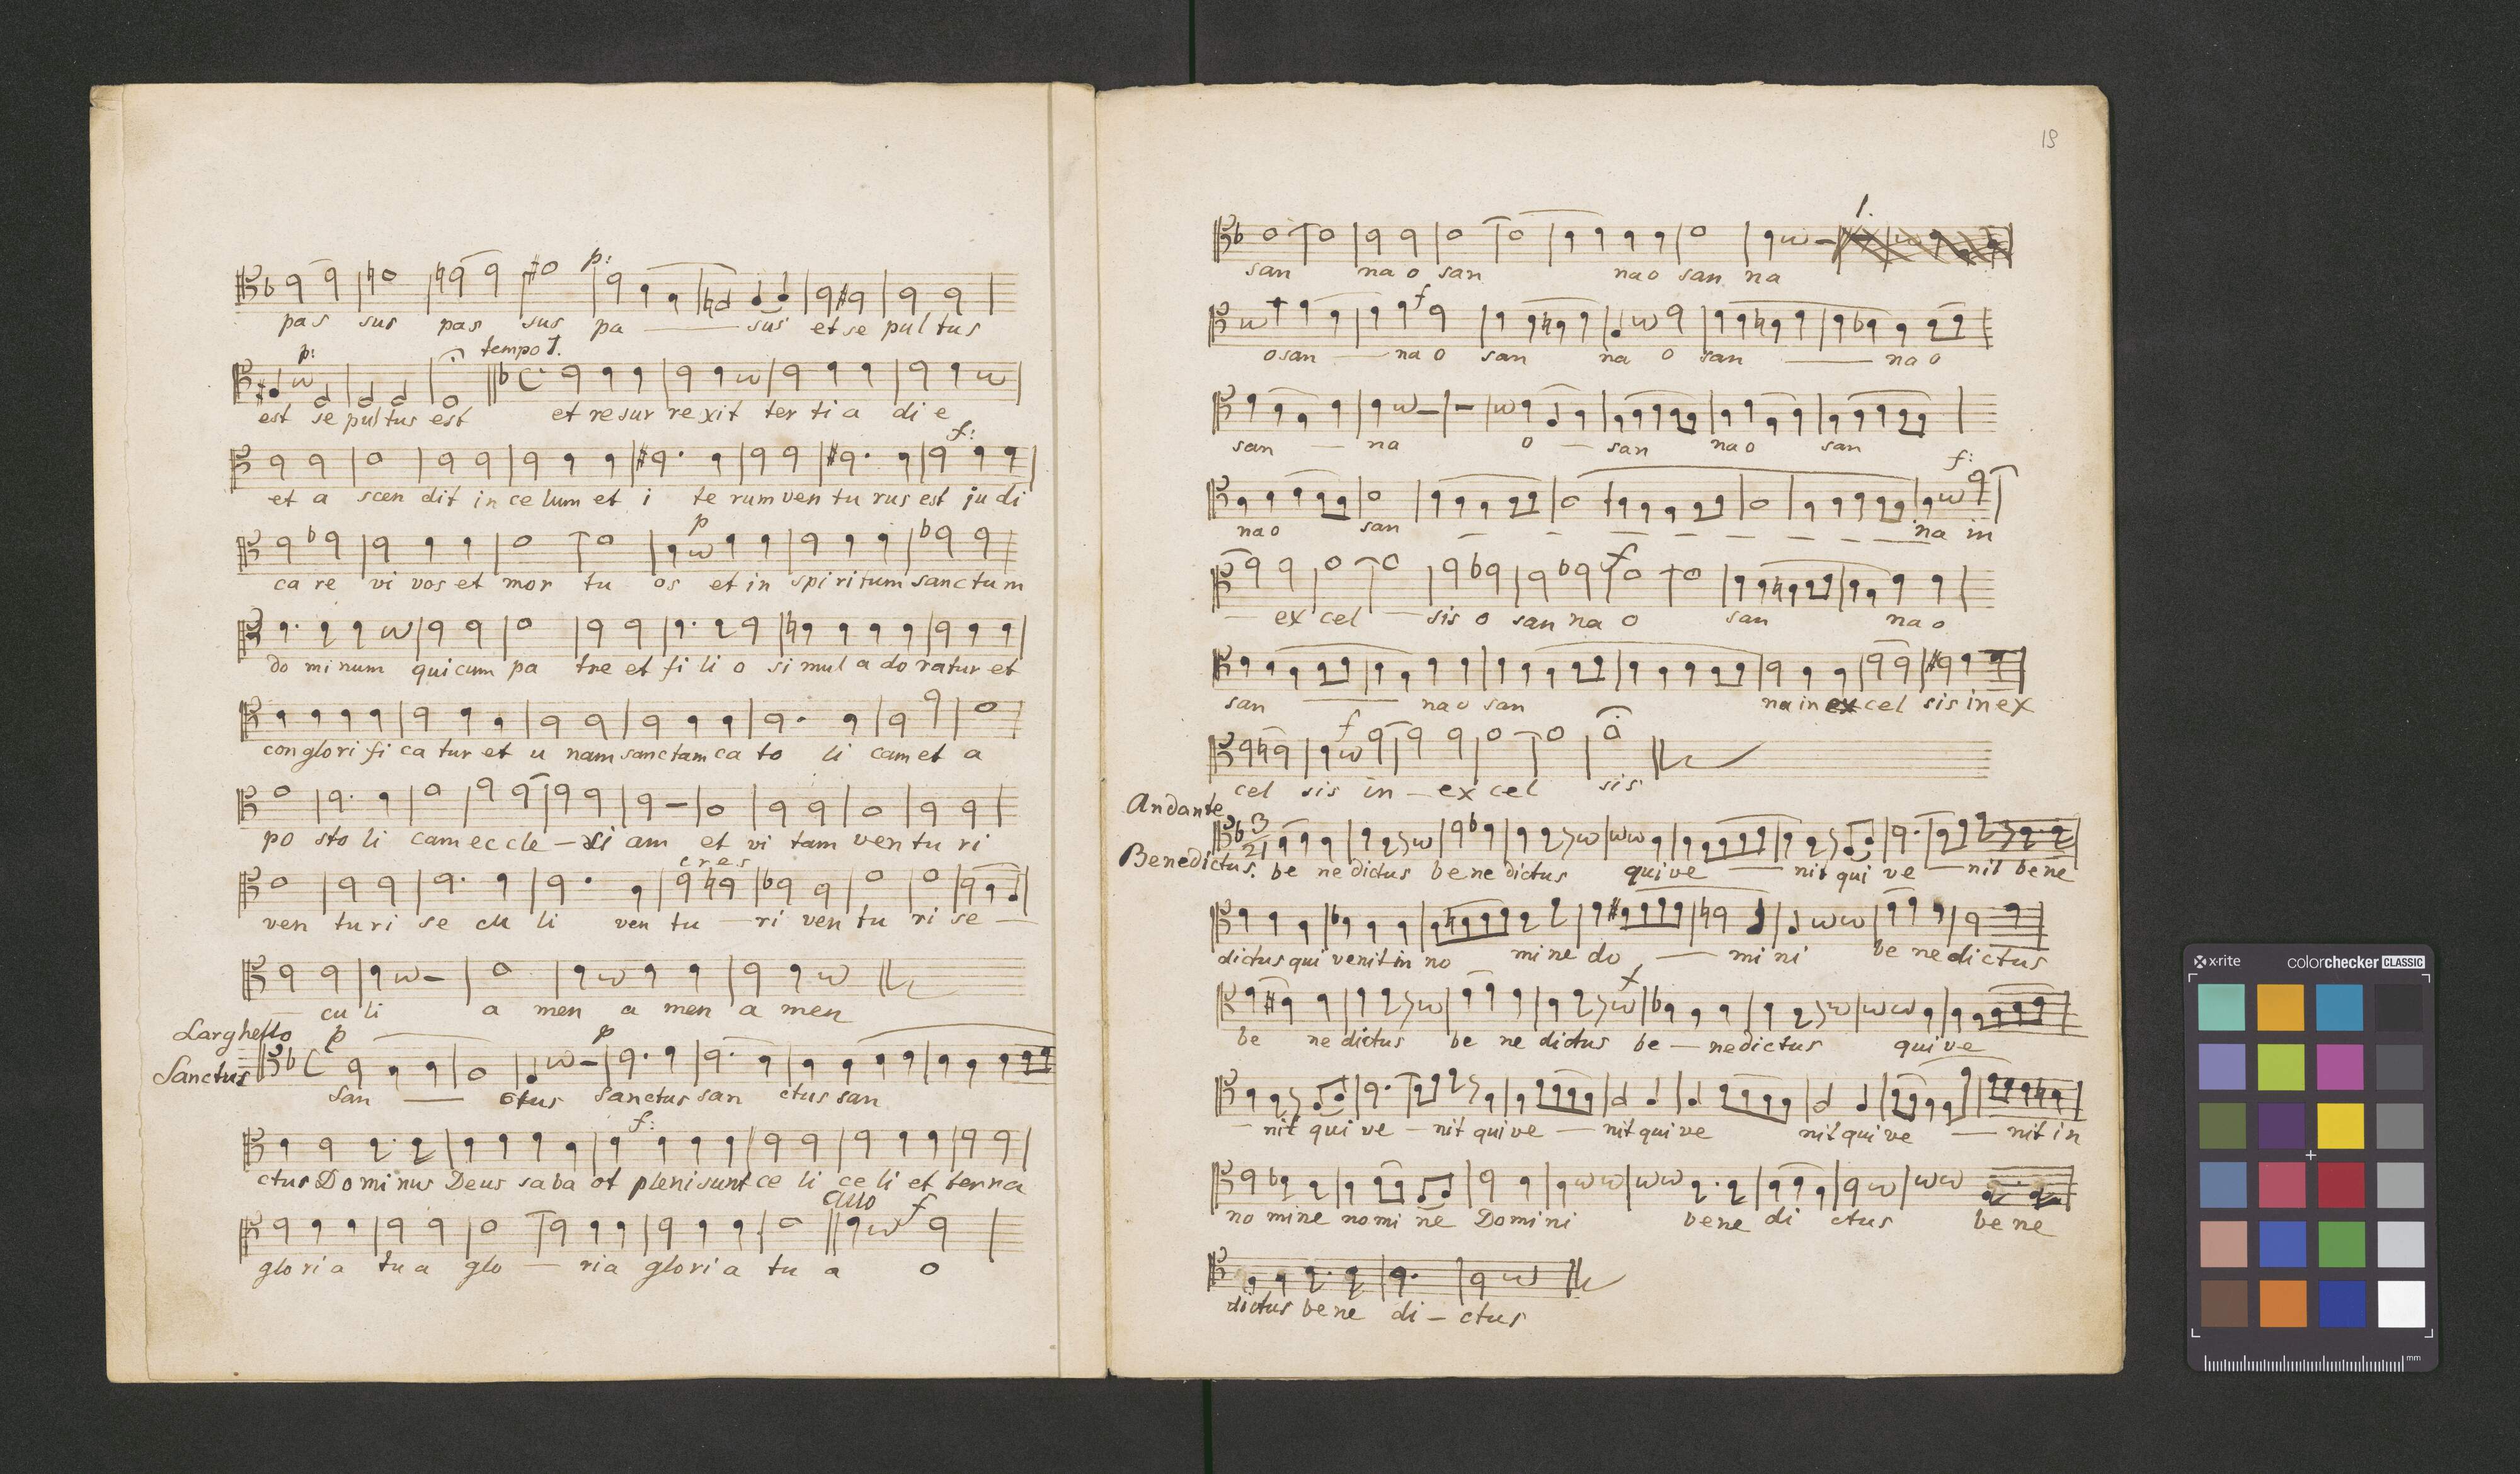 p:
pas sus pas sus pa — sus et se pul tus
p: tempo 1.
est se pul tus est et re sur re xit ter ti a di e
f:
et a scen dit in ce lum et i te rum ven tu rus est ju di
p
ca re vi vos et mor tu os et in spi ri tum sanctum
do mi num qui cum pa tre et fi li o si mul a do ratur et
con glo ri fi ca tur et u nam sanctam ca to li cam et a
po sto li cam ec cle — si am et vi tam ven tu ri
cres
ven tu ri se cu li ven tu — ri ven tu ri se —
cu li a men a men a men
Larghetto p p
Sanctus San — ctus Sanctus san ctus san
f:
ctus Do mi nus Deus sa ba ot pleni sunt ce li ce li et terra
allo f
glo ri a tu a glo — ria glori a tu a o
19
1.
san na o san na o san na
f
o san — na o san na o san — na o
san — na o — san na o san
f:
na o san — — — — — — — — na in
f
— ex cel — sis o san na o san na o
san — na o san na in cel sis in ex
f
cel sis in — ex cel sis
Andante 3
Benedictus. 21 be ne dictus be ne dictus qui ve — nit qui ve — nit be ne
dictus qui venit in no mi ne do — mi ni be ne dictus
f
be ne dictus be ne dictus be — ne dictus qui ve
— nit qui ve — nit qui ve — nit qui ve nit qui ve — nit in
no mine nomi ne Domini bene di ctus be ne
dictus be ne di — ctus
x-rite colorchecker CLASSIC
mm